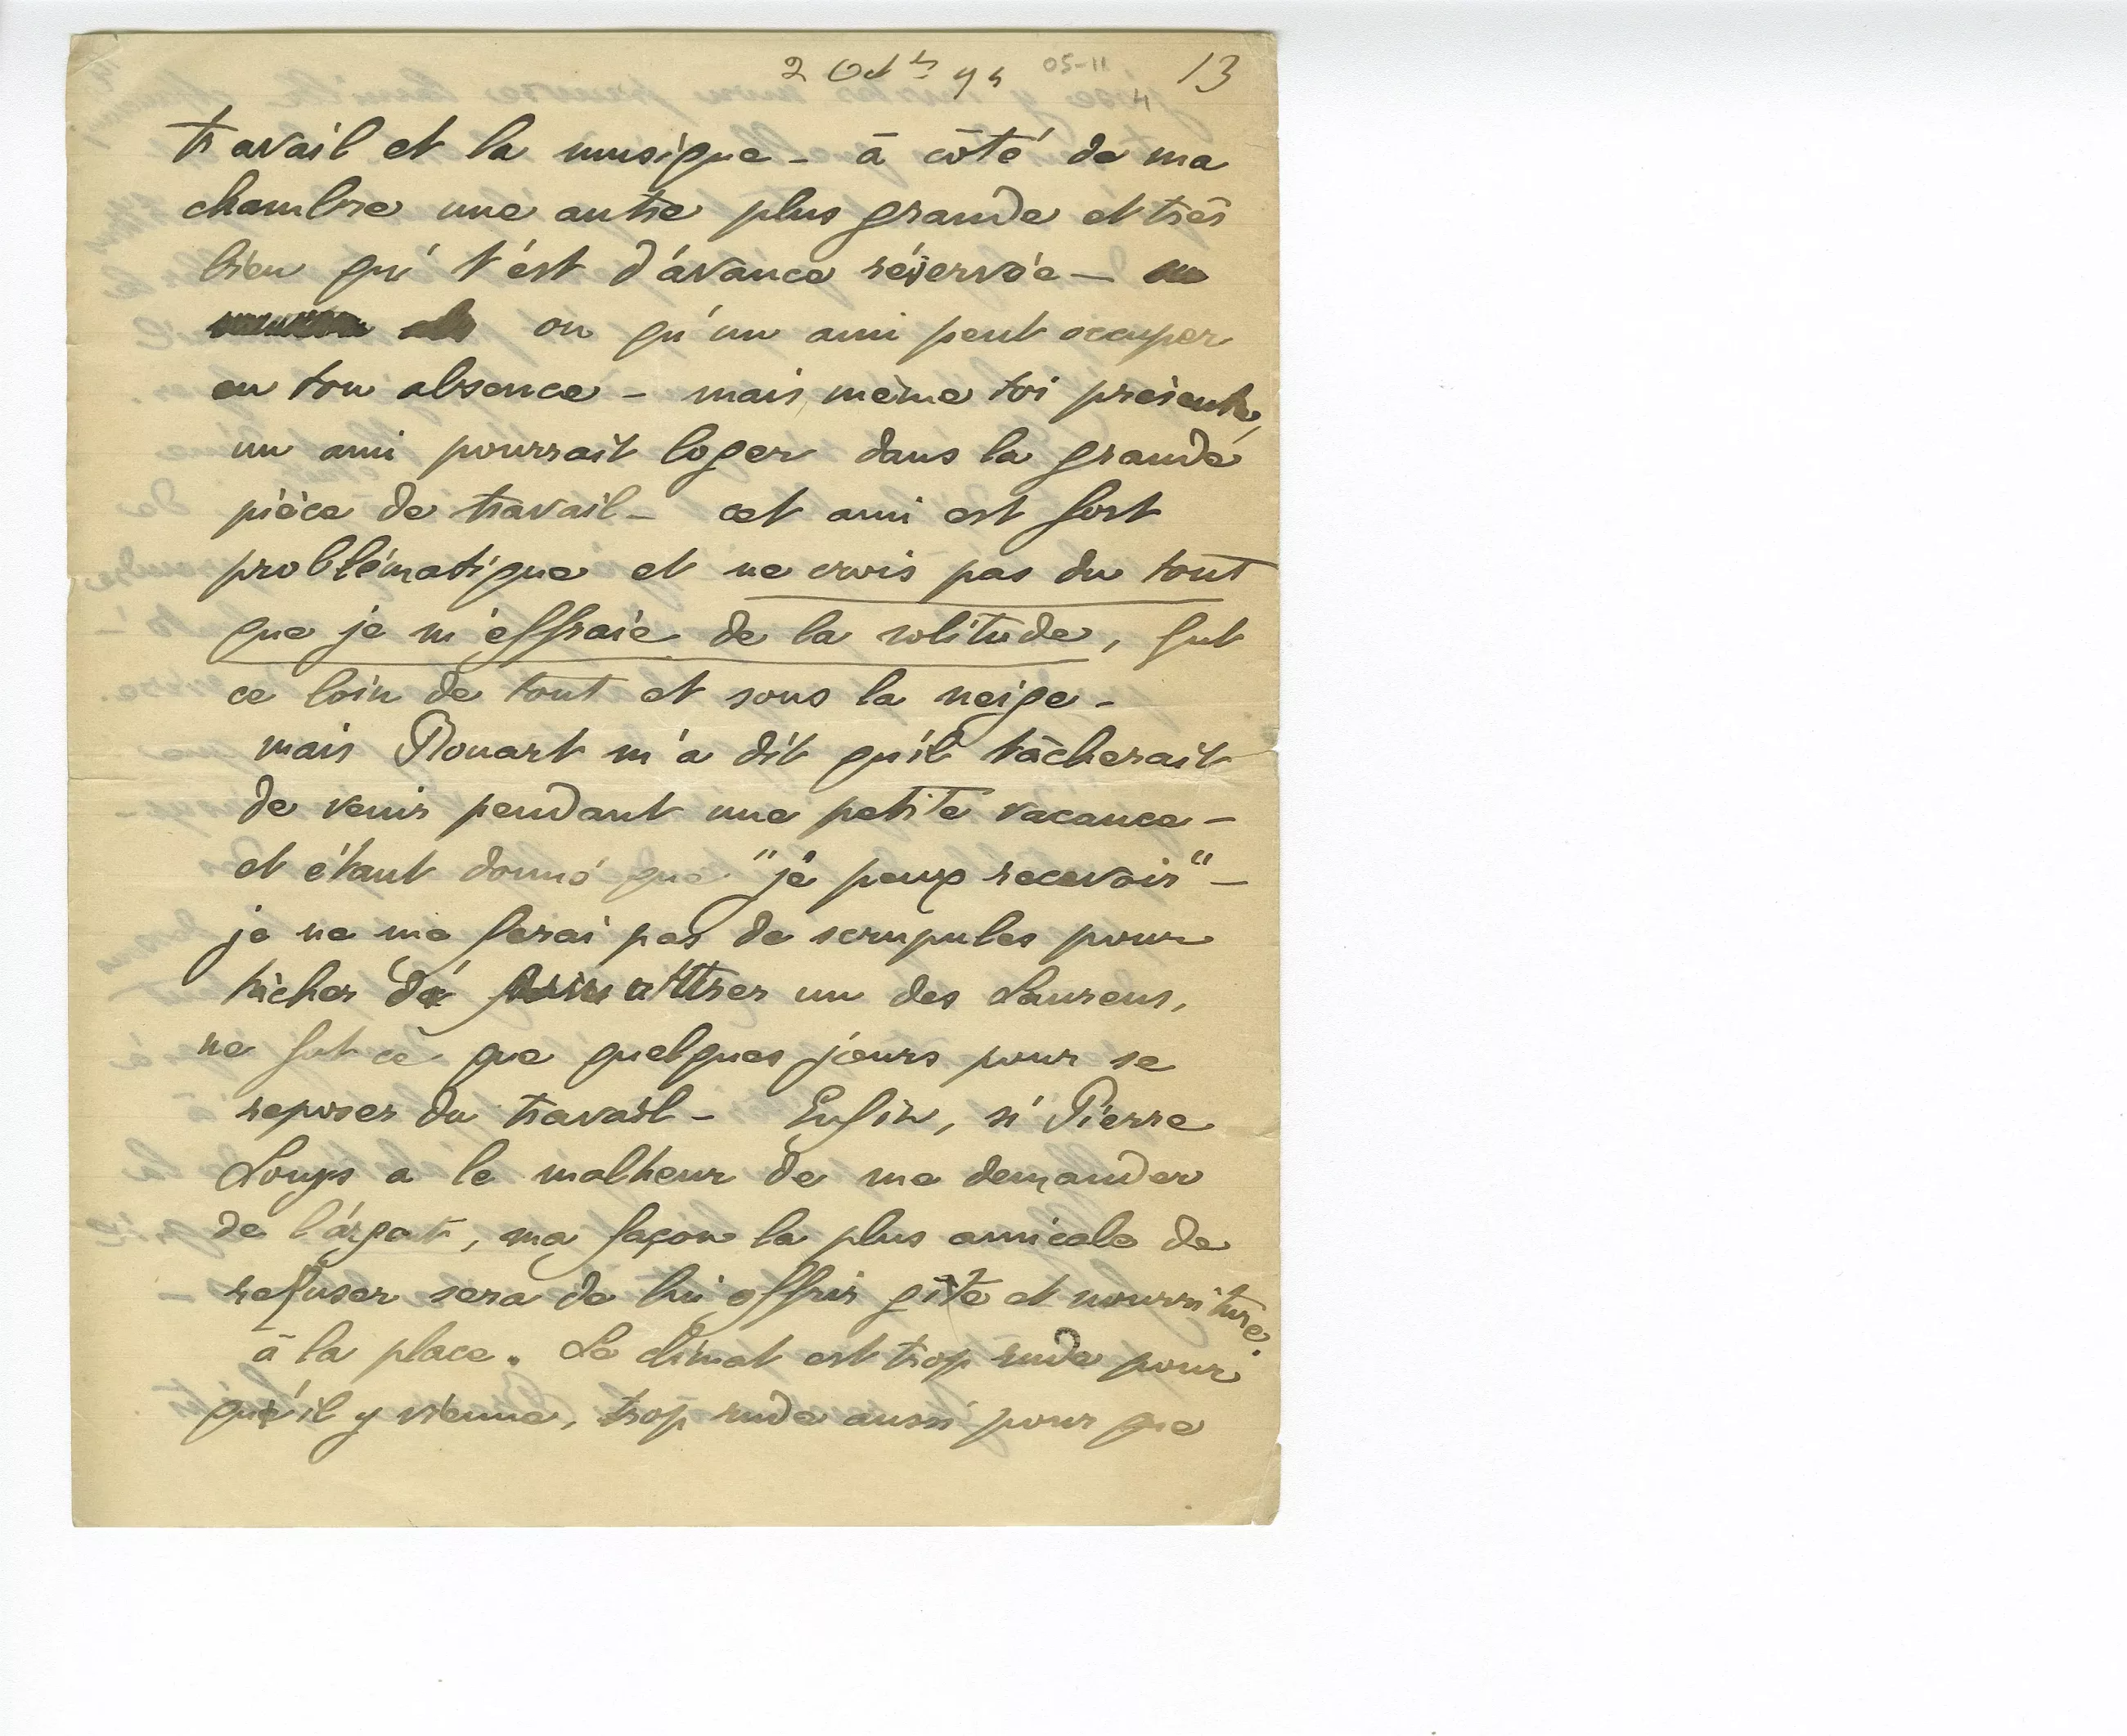 2 Oct b 94 05-11 13
4
travail et la musique - à côté de ma
chambre une autre plus grande et très
bien qui t'est d'avance réservée -
ou qu'un ami peut occuper
en ton absence - mais même toi présente,
un ami pourrait loger dans la grande
pièce de travail - cet ami est fort
problématique et ne crois pas du tout
que je m'effraie de la solitude, fut
ce loin de tout et sous la neige -
mais Rouart m'a dit qu'il tâcherait
de venir pendant une petite vacance -
et étant donné que "je peux recevoir" -
je ne me ferai pas de scrupules pour
tâcher d' attirer un des Laurens,
ne fut ce que quelques jours pour se
reposer du travail - Enfin, si Pierre
Louÿs a le malheur de me demander
de l'argent, ma façon la plus amicale de
refuser sera de lui offrir gîte et nourriture
à la place. Le climat est trop rude pour
qu'il y vienne, trop rude aussi pour que